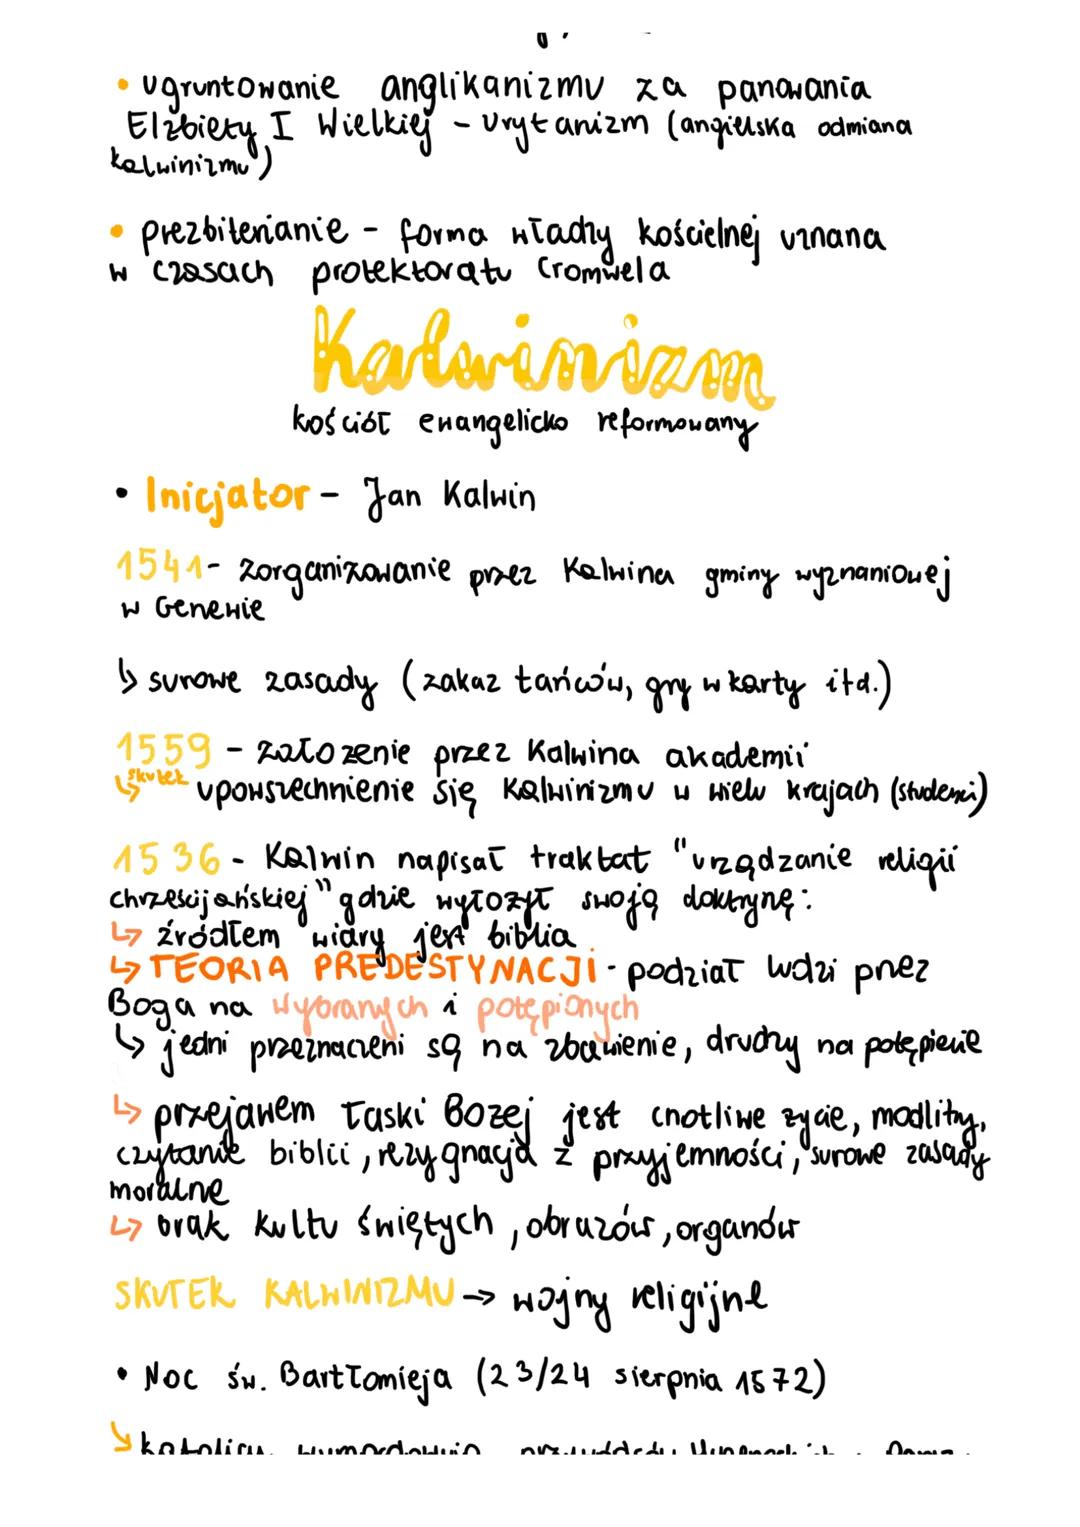 • ugruntowanie anglikanizmu za panowania
Elżbiety I Wielkiej - urytanizm (angielska odmiana
kalwinizmu)
• prezbiterianie - forma władzy kościelnej uznana
w czasach protektoratu Cromwela
Kalwinizm
kościół ewangelicko reformowany
• Inicjator - Jan Kalwin
1541 - zorganizowanie przez Kalwina gminy wyznaniowej
w Genewie
↳ surowe zasady (zakaz tańców, gry w karty itd.)
1559 - założenie przez Kalwina akademii
↳ skutek upowszechnienie się Kalwinizmu w wielu krajach (studenci)
1536 - Kalwin napisał traktat "urządzanie religii
chrześcijańskiej" gdzie wyłożył swoją doktrynę:
↳ źródłem wiary jest biblia
↳ TEORIA PREDESTYNACJI - podział ludzi przez
Boga na wybranych i potępionych
↳ jedni przeznaczeni są na zbawienie, drudzy na potępienie
↳ przejawem łaski Bożej jest cnotliwe życie, modlitwy,
czytanie biblii, rezygnacja z przyjemności, surowe zasady
moralne
↳ brak kultu świętych, obrazów, organów
SKUTEK KALWINIZMU → wojny religijne
• Noc św. Bartłomieja (23/24 sierpnia 1572)
↳ katolicy wymordowują